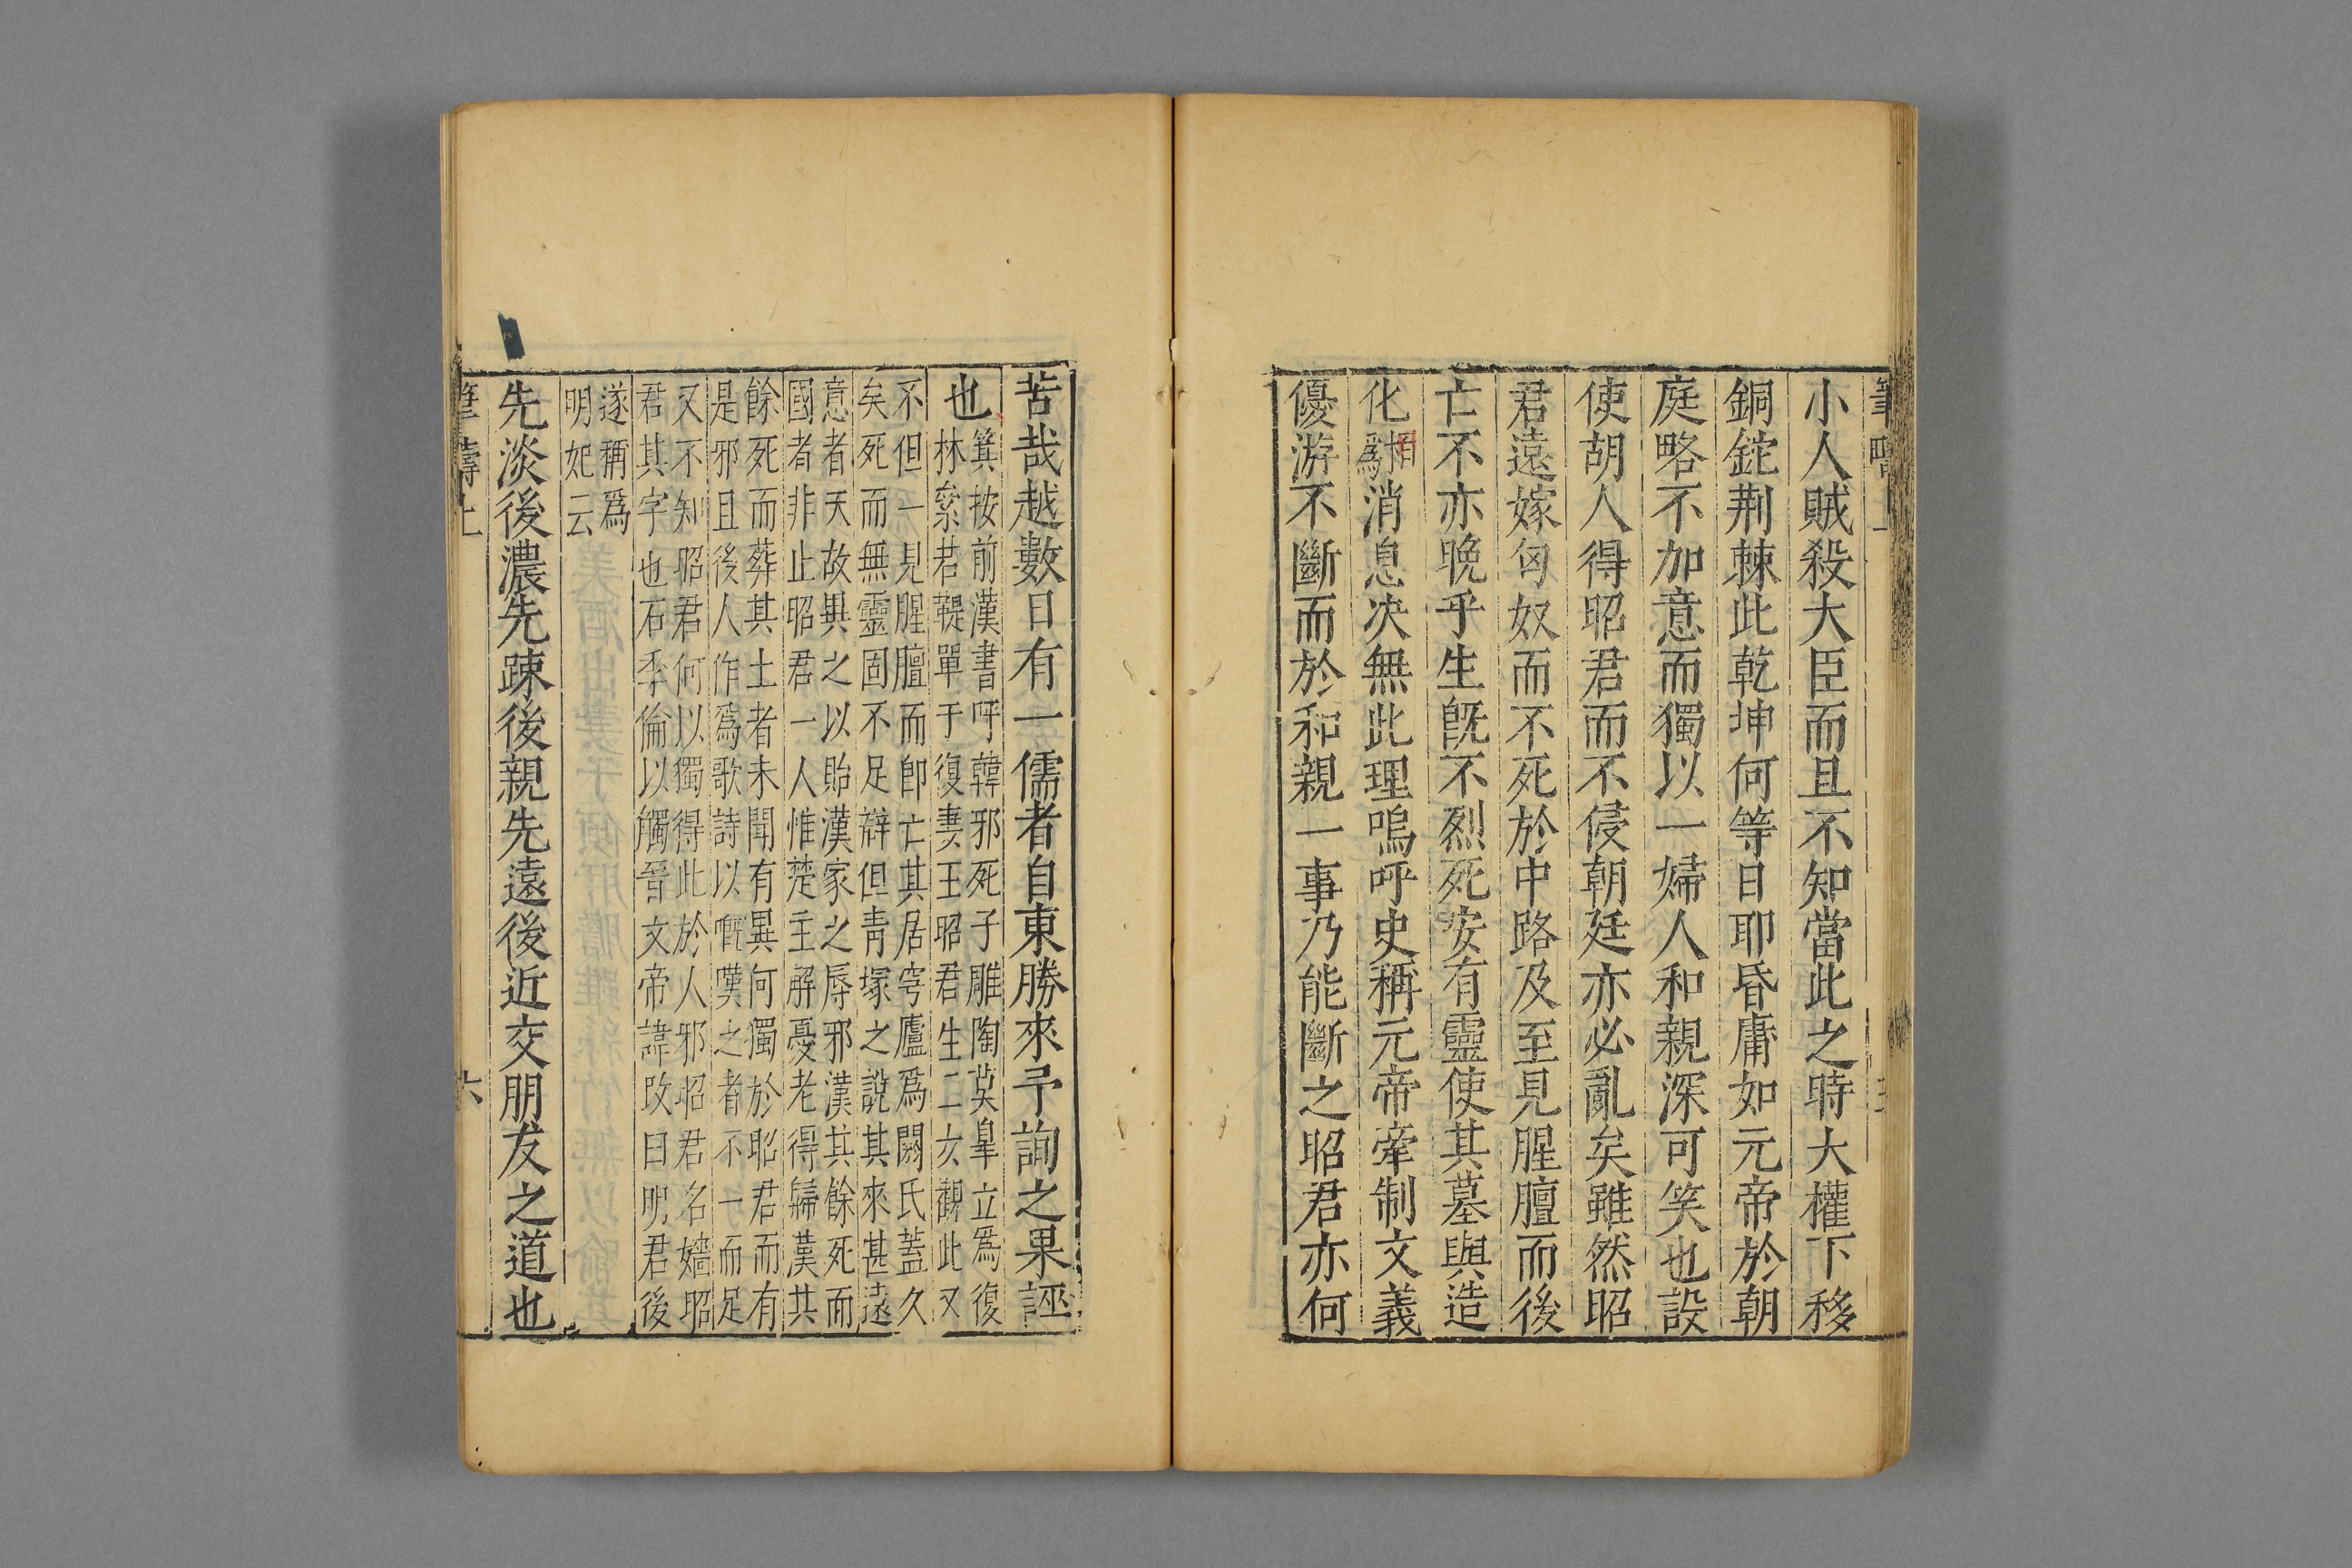 小人賊殺大臣而且不知當此之時大權下移
銅鉈荆棘此乾坤何等日耶昏庸如元帝於朝
庭略不加意而獨以一婦人和親深可笑也設
使胡人得昭君而不侵朝廷亦必亂矣雖然昭
君遠嫁匈奴而不死於中路及至見腥膻而後
亡不亦晚乎生旣不烈死安有靈使其墓與造
化
消息决無此理嗚呼史稱元帝牽制文義
優游不斷而於和親一事乃能斷之昭君亦何
苦哉越數日有一儒者自東勝來予詢之果誣
也
箕按前漢書呼韓邪死子雕陶莫臯立爲復
林絫若鞮單于復妻王昭君生二女觀此又
不但一見腥膻而卽亡其居穹廬爲閼氏蓋久
矣死而無靈固不足辯但靑塚之說其來甚遠
意者天故異之以貽漢家之辱邪漢其餘死而
國者非止昭君一人惟楚主解憂老得歸漢其
餘死而葬其土者未聞有異何獨於昭君而有
是邪且後人作爲歌詩以嘅嘆之者不一而足
又不知昭君何以獨得此於人邪昭君名嬙昭
君其字也石季倫以觸晉文帝諱改曰明君後
遂稱爲
明妃云
先淡後濃先踈後親先遠後近交朋友之道也
筆疇上
六